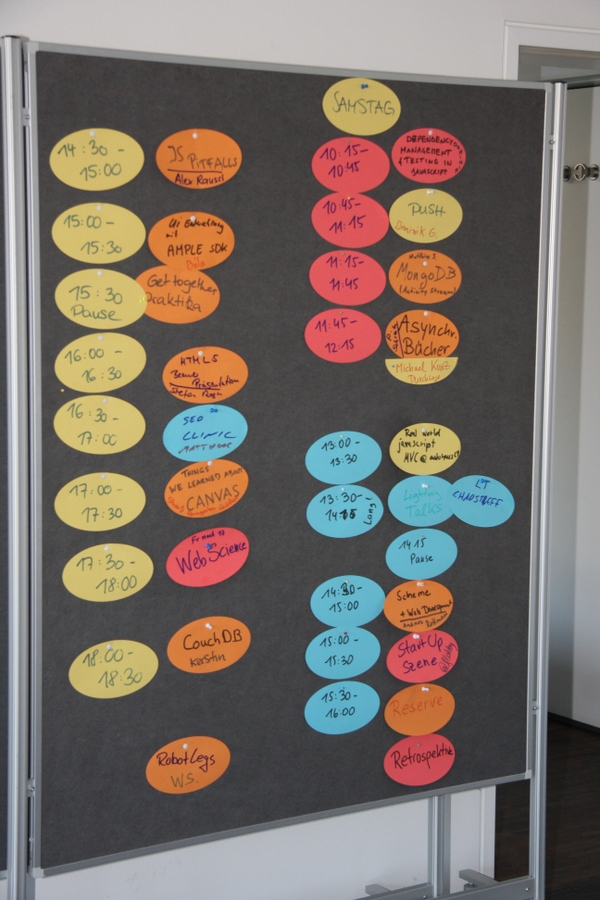 SAMSTAG
14:30 -
15:00
JS PITFALLS
Alex
15:00 -
15:30
UI Entwicklung
mit
AMPLE SDK
15:30
Pause
Get together
Praktika
16:00 -
16:30
HTML5
Präsentation
16:30 -
17:00
SEO
CLINIC
MATTHIAS
17:00 -
17:30
THINGS
WE LEARNED ABOUT
CANVAS
17:30 -
18:00
Web Science
18:00 -
18:30
CouchDB
Kerstin
RobotLegs
W.S.
10:15 -
10:45
DEPENDENCY
MANAGEMENT
+ TESTING IN
JAVASCRIPT
10:45 -
11:15
PUSH
Dominik G.
11:15 -
11:45
MongoDB
11:45 -
12:15
Asynchr.
Bücher
Michael
13:00 -
13:30
Real world
javascript
MVC @
13:30 -
Long!
Lighting
Talks
LT
14 15
Pause
15:00
Scheme
+ Web Development
15:00 -
15:30
StartUp
Szene
15:30 -
16:00
Reserve
Retrospektive